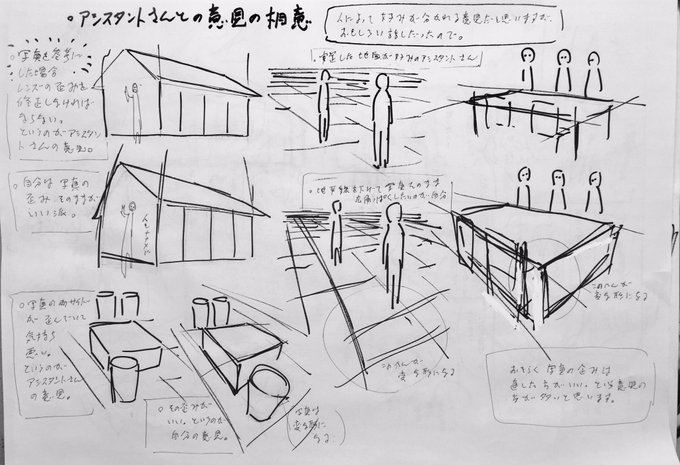 ○アシスタントさんとの意見の相違
人によって好みが分かれる意見だと思いますが、
おもしろい話だったので。
○写真を参考に
した場合
レンズの歪みを
修正しなければ
ならない。
というのがアシスタン
トさんの意見。
した地面が好みのアシスタントさん
○自分は写真の
歪みそのままが
いい派。
人もナナメに
○地平線を下げて写真そのまま
したいのが自分
このへんが
変な形になる
○写真の両サイド
が歪んでいて
気持ち
悪い。
というのが
アシスタントさん
の意見。
○その歪みが
いい。というのが
自分の意見。
写真は
変な形に
なる
このへんが
変な形になる
おそらく写真の歪みは
直した方がいい、という意見の
方が多いと思います。